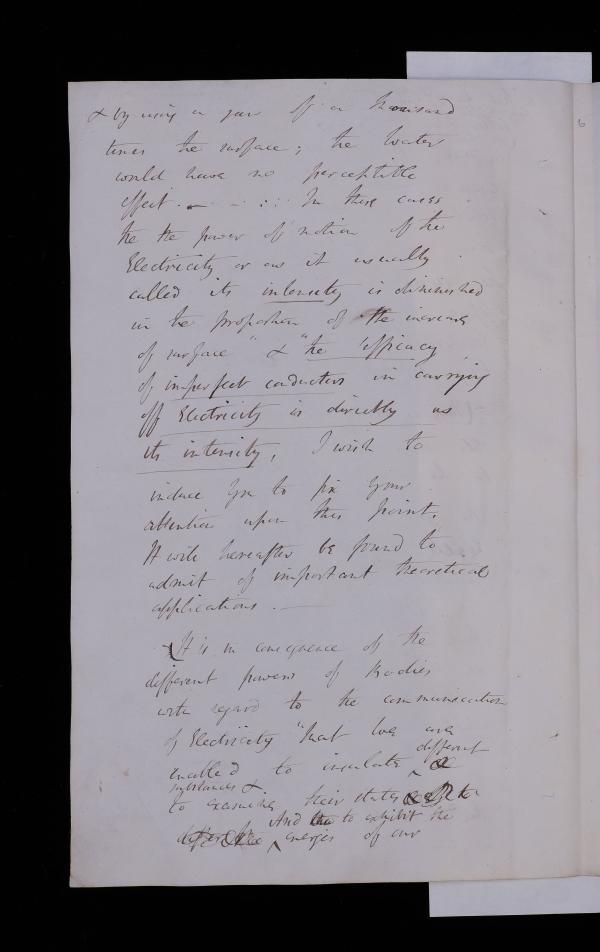 & by using a jar of a thousand
times the surface; the water
would have no perceptible
effect. — - : : : In these cases
the the power of motion of the
Electricity or as it usually
called its intensity is diminished
in the proportion of the increase
of surface " & "the efficacy
of imperfect conductors in carrying
off Electricity is directly as
its intensity, I wish to
induce you to fix your
attention upon this point.
It will hereafter be found to
admit of important theoretical
applications. —
It is in consequence of the
different powers of Bodies
with regard to the communication
of Electricity "that we are
different
enabled to insulate
substances &
to examine their states
And to exhibit the
energies of our